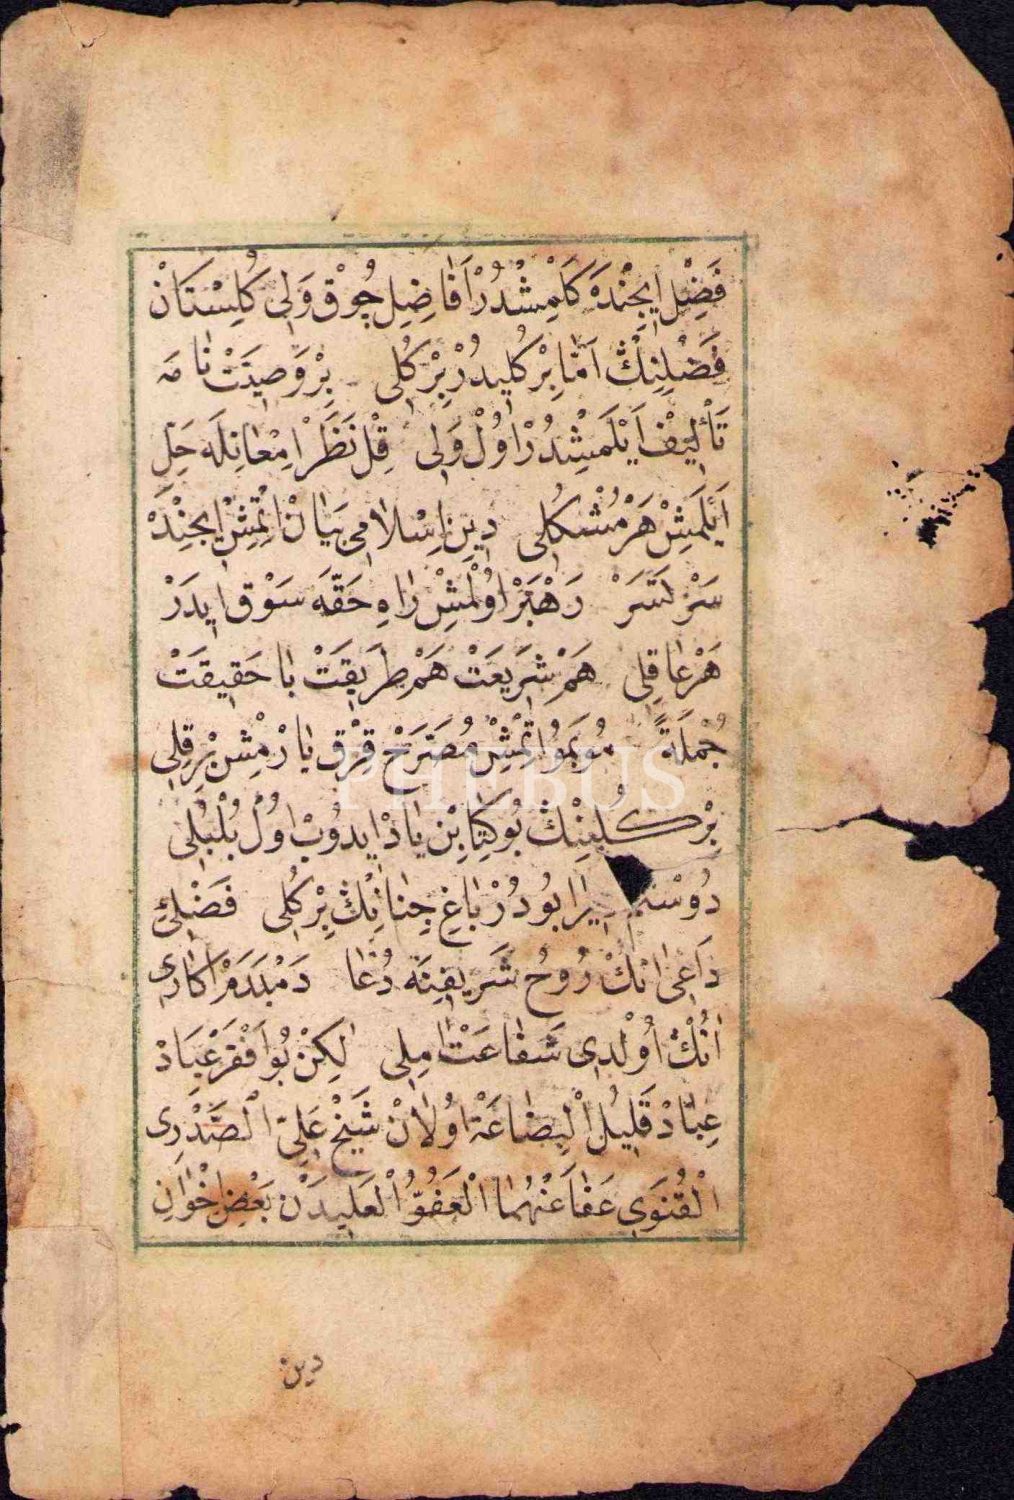 فَضْلِ اِيچِنْدَه كَلْمِشْدُرْ اَفَاضِلْ چُوقْ وَلِى كُلِسْتَانْ
فَضْلِنِڭْ اَمَّا بِرْ كُلِيدُرْ بِرْكُلِى بِرْ وَصِيَتْ نَامَه
تَأْلِيفْ اَيْلَمِشْدُرْ اُولْ وَلِى قِلْ نَظَرْ اِمْعَانِلَه حَلِّ
اَيْلَمِشْ هَرْ مُشْكُلِى دِينِ اِسْلَامِى بَيَانْ اِتْمِشْ اِيچِنْدَه
سَرْ تَسَرْ رَهْبَرْ اُولْمِشْ رَاهِ حَقَّه سَوْقْ اِيدَرْ
هَرْ عَاقِلِى هَمْ شَرِيعَتْ هَمْ طَرِيقَتْ بَا حَقِيقَتْ
جُمْلَةً مُوبَمُو اِتْمِشْ مُصَرَّحْ قِرْقْ يَارْمِشْ بِرْ قِلِى
بِرْكُلِينِڭْ بُو كِتَابِنْ يَادْ اِيدُوبْ اُولْ بُلْبُلِى
بُودُرْ بَاغِ جِنَانِڭْ بِرْ كُلِى فَضْلِئِ
دَاعِى اَنِكْ رُوحُ شَرِيفِنَه دُعَا دَمْبَدَمْ
اَنُكْ اُولْدِى شَفَاعَتْ اَمِلِى لٰكِنْ بُو اَفْقَرِ عِبَادْ
عِبَادْ قَلِيلُ الْبِضَاعَةْ اُولَانْ شَيْخْ عَلِىِّ الصَّدْرِى
الْقُنَوِى عَفَا عَنْهُمَا الْعَفُوُّ الْعَلِيدَنْ بَعْضِ اِخْوَانِ
دين
PHEBUS